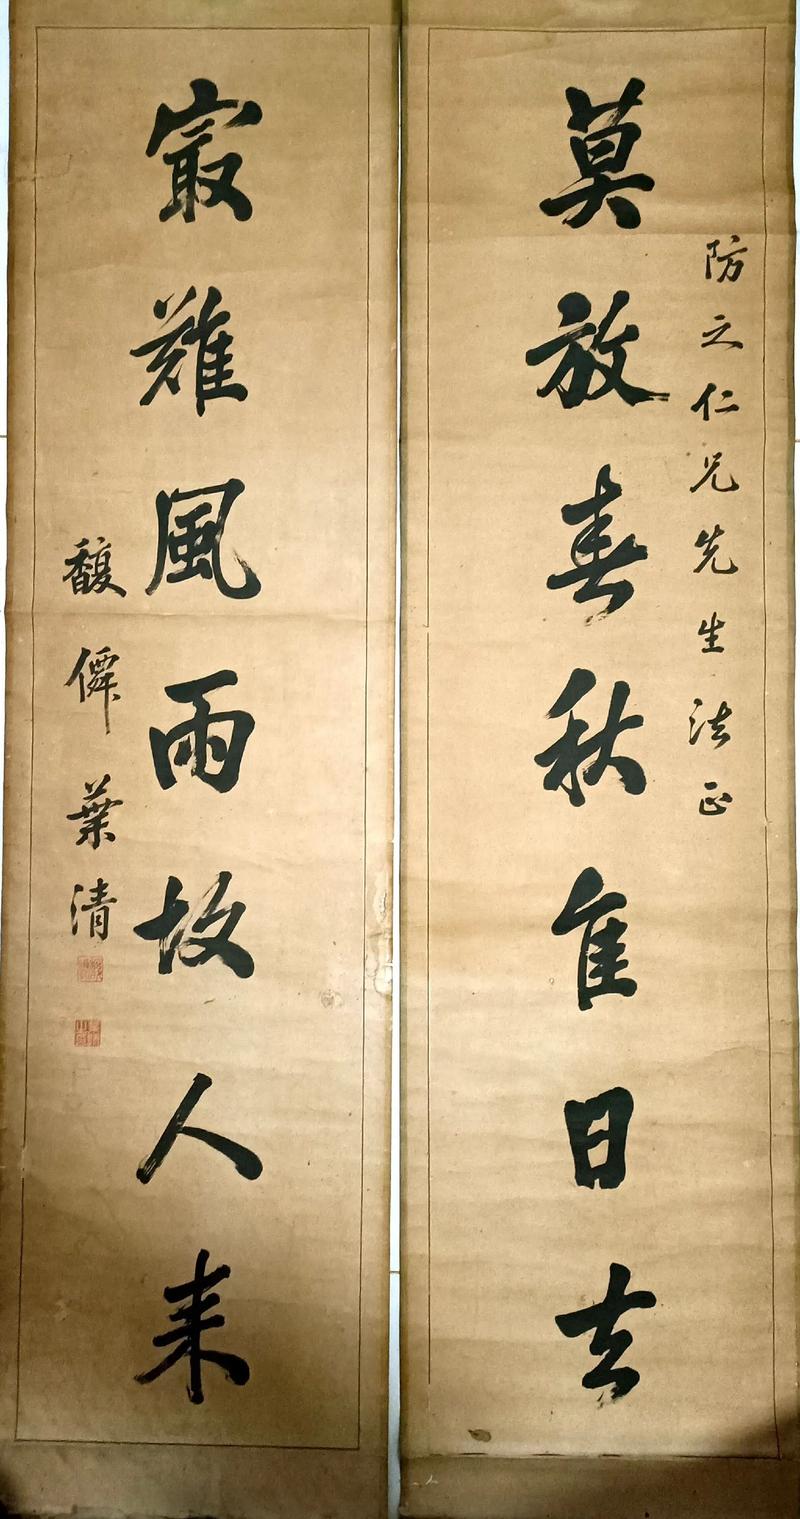 防之仁兄先生法正
莫放春秋佳日去
最難風雨故人来
馥儛葉清